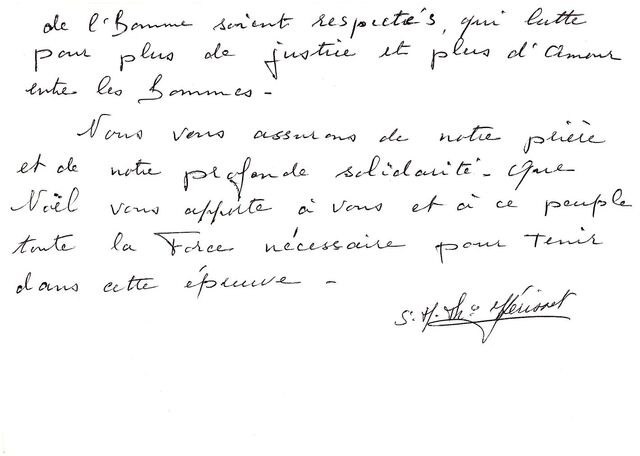 de l'Homme soient respectés, qui lutte
pour plus de justice et plus d'Amour
entre les Hommes -
Nous vous assurons de notre prière
et de notre profonde solidarité - Que
Noël vous apporte à vous et à ce peuple
toute la Force nécessaire pour Tenir
dans cette épreuve -
Sr M. Th.